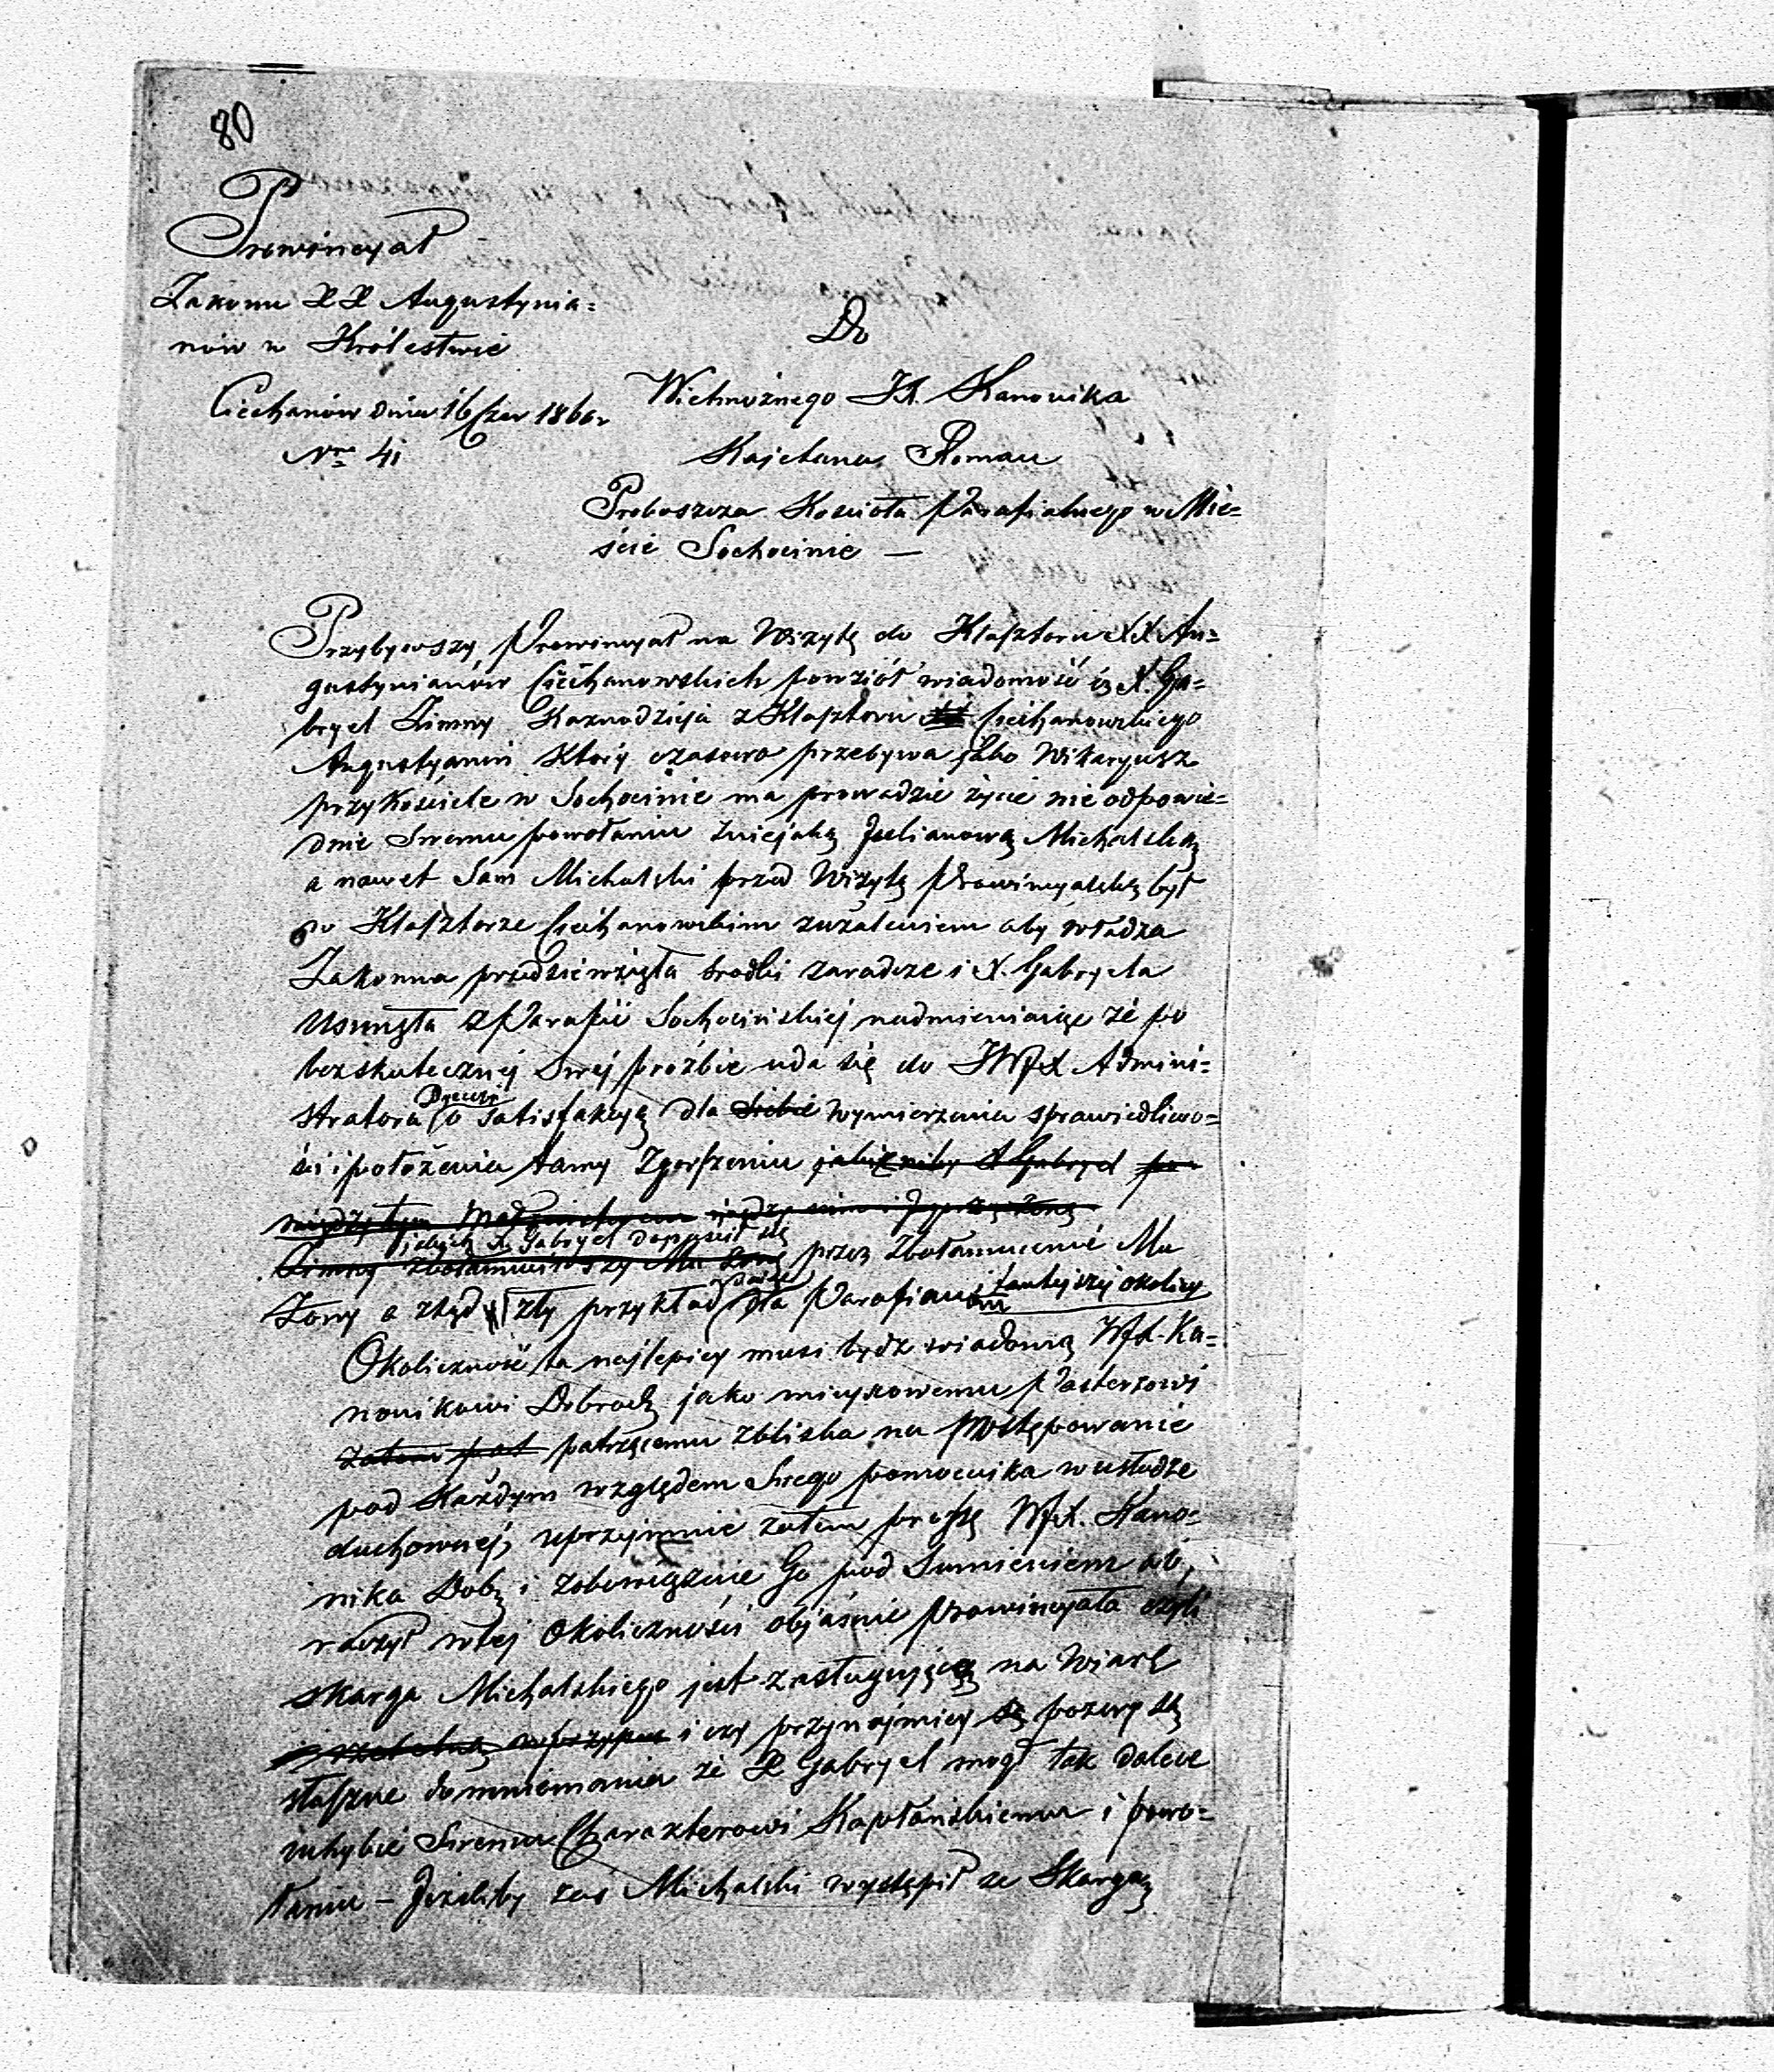 80
Prowincyał
Zakonu XX Augustynia=
nów w Królestwie
Ciechanów dnia 16 Czer 1860r
Nro 41
Do
Wielmożnego JX. Kanonika
Kajetana Roman
Proboszcza Kościoła Parafialnego w Mie=
ście Sochocinie —
Przybywszy Prowincyał na Wizytę do Klasztoru XX Au=
gustynianów Ciechanowskich powziół wiadomość iż X. Ga=
bryel Zimny Kaznodzieja z Klasztoru Ciechanowskiego
Augustyanin który czasowo przebywa jako Wikaryusz
przy Kościele w Sochocinie ma prowadzić życie nie odpowie=
dnie Swemu powołaniu z niejaką Julianową Michalską
a nawet Sam Michalski przed Wizytą Prowincyalską był
w Klasztorze Ciechanowskim z użaleniem aby władza
Zakonna przedsięwzięła srodki zaradcze i X. Gabryela
Usunęła z Parafii Sochocińskiej nadmieniając że po
bezskutecznej Swej prozbie uda się do JWJX Admini=
stratora Dyecezyi o satisfakcyą dla siebie wymierzenia sprawiedliwo=
ści i położenia tamy Zgorszeniu jakie niby X Gabryel po=
między tym Małżeństwem
jakich X. Gabryel dopuścił się
Zimny zbałamuciwszy Mu Żonę przez zbałamucenie Mu
Żony a ztąd zły przykład daje dla Parafianów i tutejszej okolicy
Okoliczność ta najlepiej musi bydz wiadomą WJX. Ka=
nonikowi Dobrodz jako miejscowemu Pasterzowi
zatem pat patrzącemu zbliska na postępowanie
pod każdym względem Swego pomocnika w usłudze
duchownej, uprzejmie zatem proszę WJX. Kano=
nika Dob. i zobowiązuie Go pod Sumieniem ab,
raczył w tej Okoliczności objaśnić Prowincyała czyli
skarga Michalskiego jest zasługującą na Wiarę
i czy przynajmiej są pozory są
słuszne domniemania że X Gabryel mogł tak dalece
uchybić Swemu Charakterowi Kapłańskiemu i powo=
łaniu – Jeżeliby zas Michalski wystąpił ze Skargą